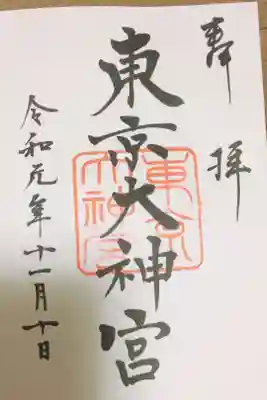 奉拝
東京大神宮
東京大神宮
令和元年十一月十日